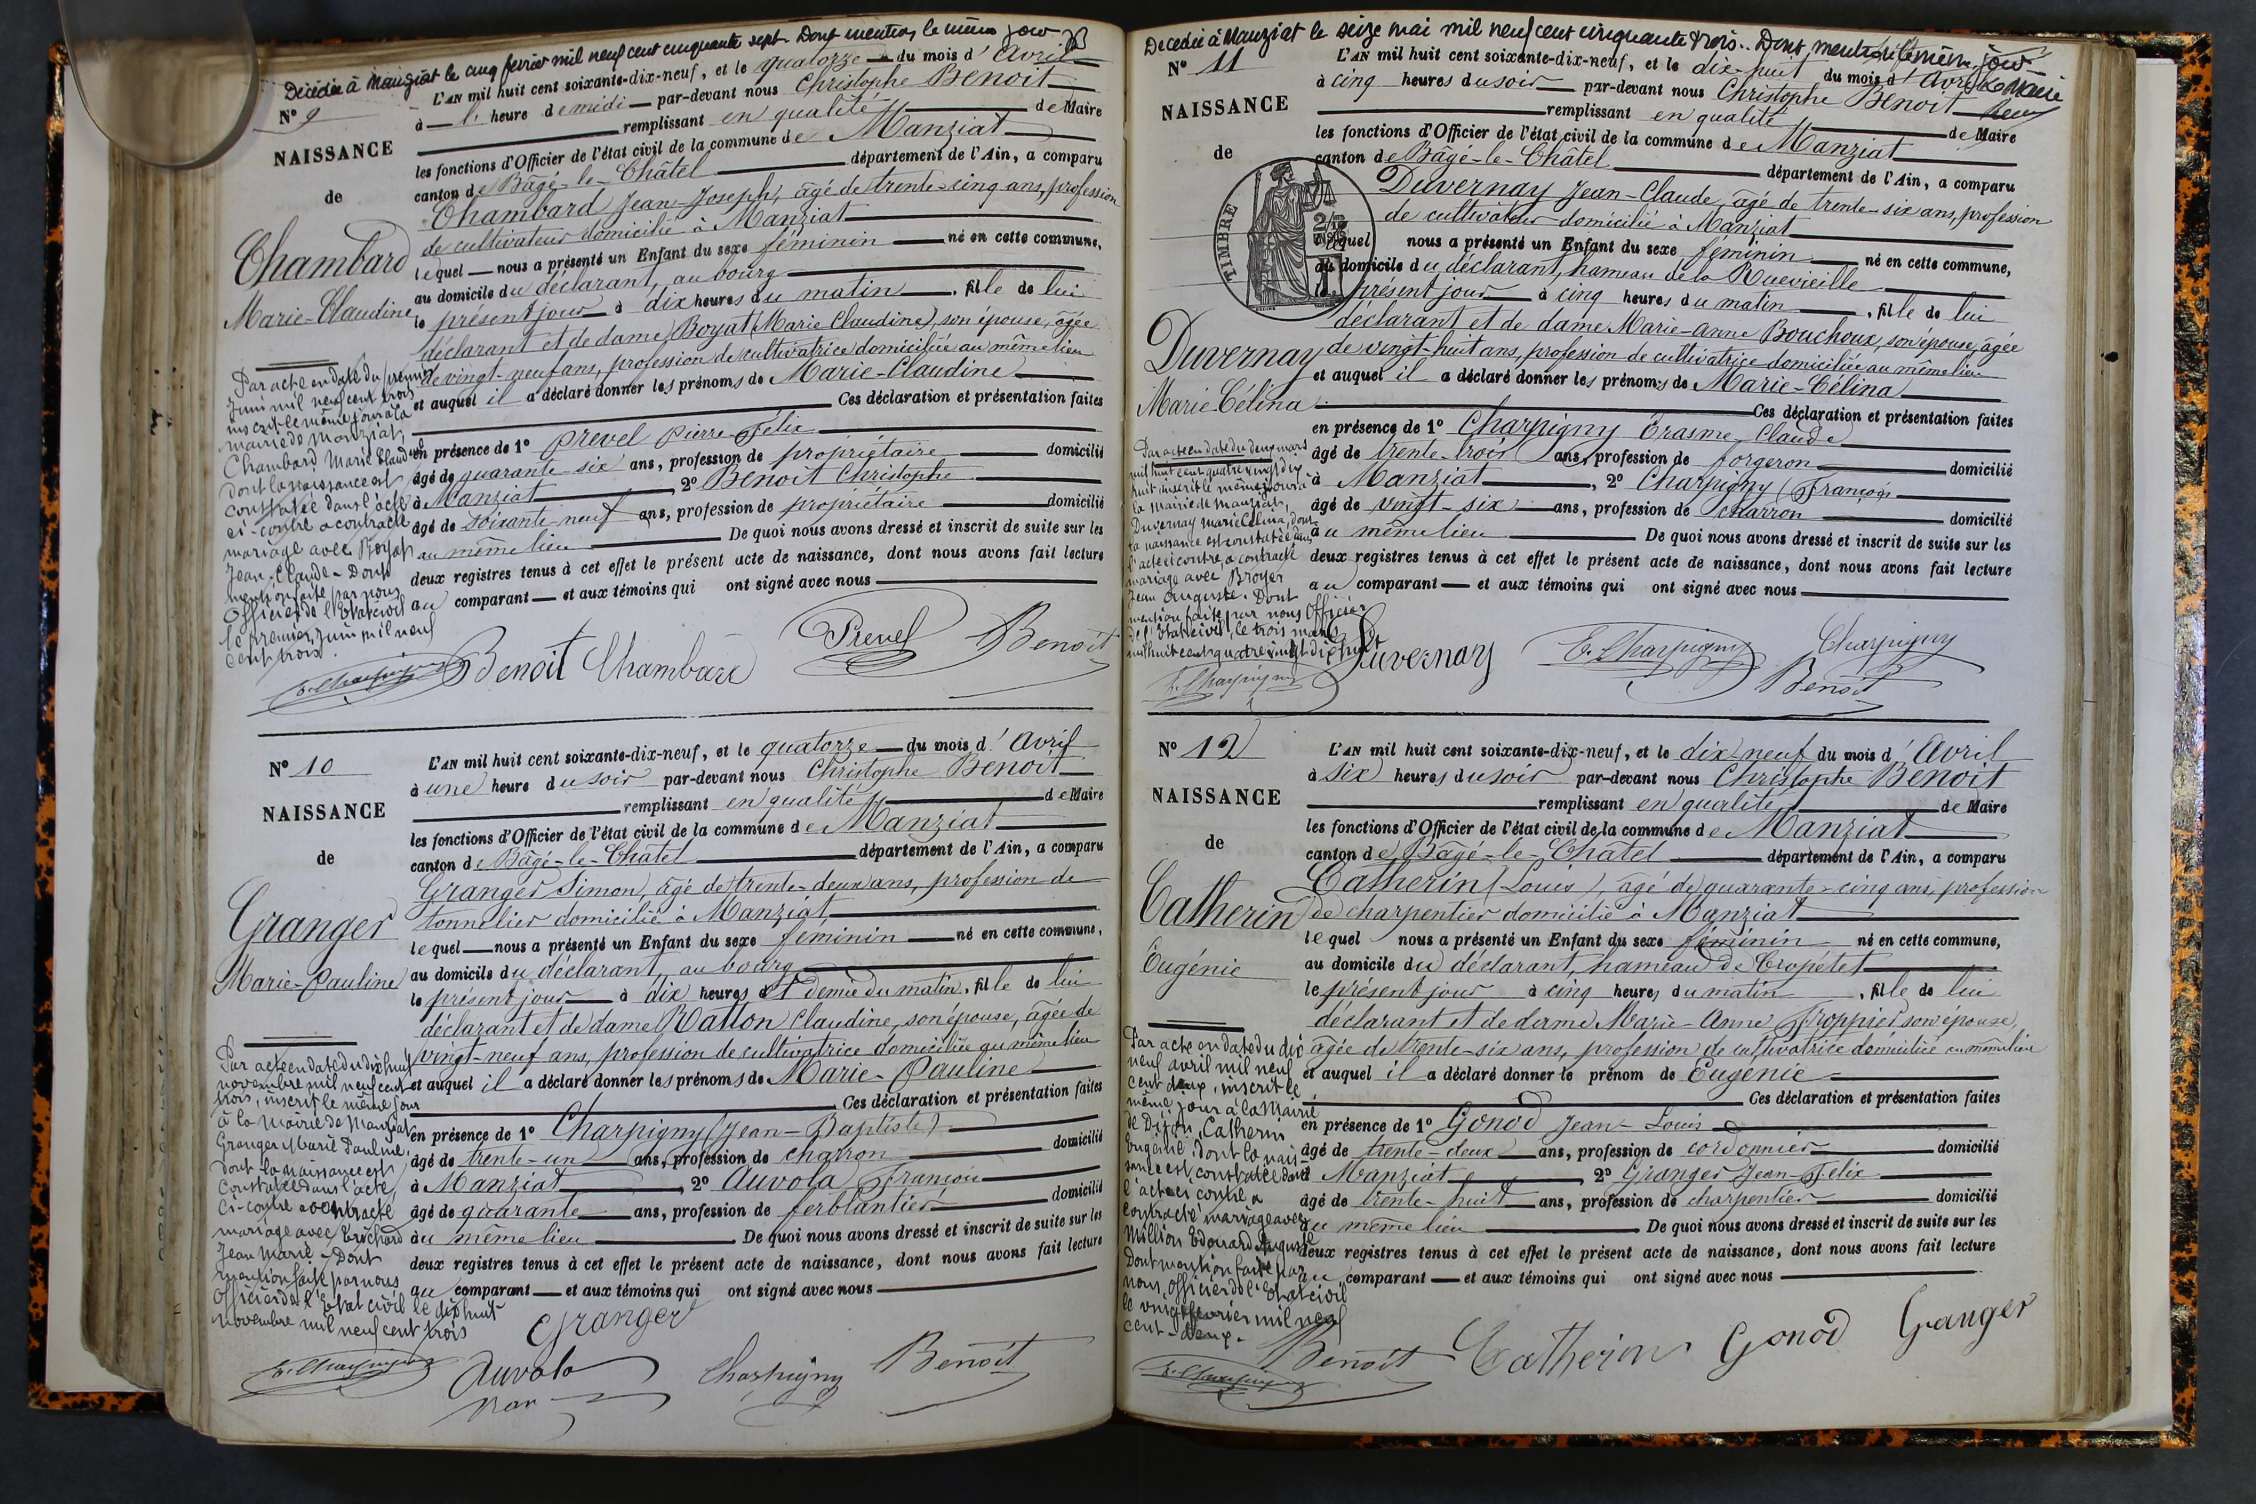 Décédée à Manziat le cinq février mil neuf cent cinquante sept Dont mention le même jour
N° 9
NAISSANCE
de
Chambard
Marie-Claudine
L'AN mil huit cent soixante-dix-neuf, et le quatorze du mois d'Avril
à l'heure de midi par-devant nous Christophe Benoit
remplissant en qualité de Maire
les fonctions d'Officier de l'état civil de la commune de Manziat
canton de Bâgé-le-Châtel département de l'Ain, a comparu
Chambard Jean-Joseph, âgé de trente-cinq ans, profession
de cultivateur domicilié à Manziat
lequel nous a présenté un Enfant du sexe féminin né en cette commune,
au domicile du déclarant, au bourg
le présent jour à dix heures du matin, fille de lui
déclarant et de dame Boyat (Marie Claudine), son épouse, âgée
de vingt-neuf ans, profession de cultivatrice domiciliée au même lieu
et auquel il a déclaré donner les prénoms de Marie-Claudine
Ces déclaration et présentation faites
en présence de 1° Prevel Pierre Félix
âgé de quarante-six ans, profession de propriétaire domicilié
à Manziat, 2° Benoit Christophe
âgé de soixante-neuf ans, profession de propriétaire domicilié
au même lieu De quoi nous avons dressé et inscrit de suite sur les
deux registres tenus à cet effet le présent acte de naissance, dont nous avons fait lecture
au comparant et aux témoins qui ont signé avec nous
Par acte en date du premier
juin mil neuf cent trois
inscrit le même jour à la
mairie de Manziat,
Chambard Marie Claudine
dont la naissance est
constatée dans l'acte
ci-contre a contracté
mariage avec Boyat
Jean-Claude - Dont
mention faite par nous
Officier de l'Etat civil
le premier juin mil neuf
cent trois.
Benoit Chambard Prevel Benoit
N° 10
NAISSANCE
de
Granger
Marie-Pauline
L'AN mil huit cent soixante-dix-neuf, et le quatorze du mois d'Avril
à une heure du soir par-devant nous Christophe Benoit
remplissant en qualité de Maire
les fonctions d'Officier de l'état civil de la commune de Manziat
canton de Bâgé-le-Châtel département de l'Ain, a comparu
Granger Simon, âgé de trente-deux ans, profession de
tonnelier domicilié à Manziat
lequel nous a présenté un Enfant du sexe féminin né en cette commune,
au domicile du déclarant, au bourg
le présent jour à dix heures et demie du matin, fille de lui
déclarant et de dame Ratton Claudine, son épouse, âgée de
vingt-neuf ans, profession de cultivatrice domiciliée au même lieu
et auquel il a déclaré donner les prénoms de Marie-Pauline
Ces déclaration et présentation faites
en présence de 1° Charpigny (Jean-Baptiste)
âgé de trente-un ans, profession de charron domicilié
à Manziat, 2° Auvola François
âgé de quarante ans, profession de ferblantier domicilié
au même lieu De quoi nous avons dressé et inscrit de suite sur les
deux registres tenus à cet effet le présent acte de naissance, dont nous avons fait lecture
au comparant et aux témoins qui ont signé avec nous
Par acte en date du dix huit
novembre mil neuf cent
trois, inscrit le même jour
à la Mairie de Manziat
Granger Marie Pauline,
dont la naissance est
constatée dans l'acte
ci-contre a contracté
mariage avec Tréchard
Jean Marie - Dont
mention faite par nous
Officier de l'Etat civil le dix huit
novembre mil neuf cent trois
Granger
Auvola Charpigny Benoit
Décédée à Manziat le seize mai mil neuf cent cinquante trois. Dont mention le même jour
Le Maire
N° 11
NAISSANCE
de
TIMBRE
Duvernay
Marie Célina
L'AN mil huit cent soixante-dix-neuf, et le dix-huit du mois d'Avril
à cinq heures du soir par-devant nous Christophe Benoit
remplissant en qualité de Maire
les fonctions d'Officier de l'état civil de la commune de Manziat
canton de Bâgé-le-Châtel département de l'Ain, a comparu
Duvernay Jean-Claude, âgé de trente-six ans, profession
de cultivateur domicilié à Manziat
lequel nous a présenté un Enfant du sexe féminin né en cette commune,
au domicile du déclarant, hameau de la Ruevieille
le présent jour à cinq heures du matin, fille de lui
déclarant et de dame Marie-Anne Bouchoux, son épouse, âgée
de vingt-huit ans, profession de cultivatrice domiciliée au même lieu
et auquel il a déclaré donner les prénoms de Marie-Célina
Ces déclaration et présentation faites
en présence de 1° Charpigny Érasme Claude
âgé de trente-trois ans, profession de forgeron domicilié
à Manziat, 2° Charpigny (François
âgé de vingt-six ans, profession de charron domicilié
au même lieu De quoi nous avons dressé et inscrit de suite sur les
deux registres tenus à cet effet le présent acte de naissance, dont nous avons fait lecture
au comparant et aux témoins qui ont signé avec nous
Par acte en date du deux mars
mil huit cent quatre vingt dix
huit inscrit le même jour à
la Mairie de Manziat,
Duvernay Marie Célina, dont
la naissance est constatée dans
l'acte ci contre, a contracté
mariage avec Broyer
Jean Auguste. Dont
mention faite par nous Officier
de l'Etat civil, le trois mars
mil huit cent quatre vingt dix huit
Duvernay E. Charpigny Charpigny
Benoit
N° 12
NAISSANCE
de
Catherin
Eugénie
L'AN mil huit cent soixante-dix-neuf, et le dix-neuf du mois d'Avril
à six heures du soir par-devant nous Christophe Benoit
remplissant en qualité de Maire
les fonctions d'Officier de l'état civil de la commune de Manziat
canton de Bâgé-le-Châtel département de l'Ain, a comparu
Catherin (Louis), âgé de quarante-cinq ans, profession
de charpentier domicilié à Manziat
lequel nous a présenté un Enfant du sexe féminin né en cette commune,
au domicile du déclarant, hameau de Cropétet
le présent jour à cinq heures du matin, fille de lui
déclarant et de dame Marie-Anne Froppier son épouse,
âgée de trente-six ans, profession de cultivatrice domiciliée au même lieu
et auquel il a déclaré donner le prénom de Eugénie
Ces déclaration et présentation faites
en présence de 1° Gonod Jean-Louis
âgé de trente-deux ans, profession de cordonnier domicilié
à Manziat, 2° Granger Jean-Félix
âgé de trente-huit ans, profession de charpentier domicilié
au même lieu De quoi nous avons dressé et inscrit de suite sur les
deux registres tenus à cet effet le présent acte de naissance, dont nous avons fait lecture
au comparant et aux témoins qui ont signé avec nous
Par acte en date du dix
neuf avril mil neuf
cent deux, inscrit le
même jour à la Mairie
de Dijon, Catherin
Eugénie, dont la nais-
sance est constatée dans
l'acte ci contre a
contracté mariage avec
Million Edouard Auguste
Dont mention faite par
nous, Officier de l'Etat civil
le vingt février mil neuf
cent-deux.
Benoit Catherin Gonod Granger